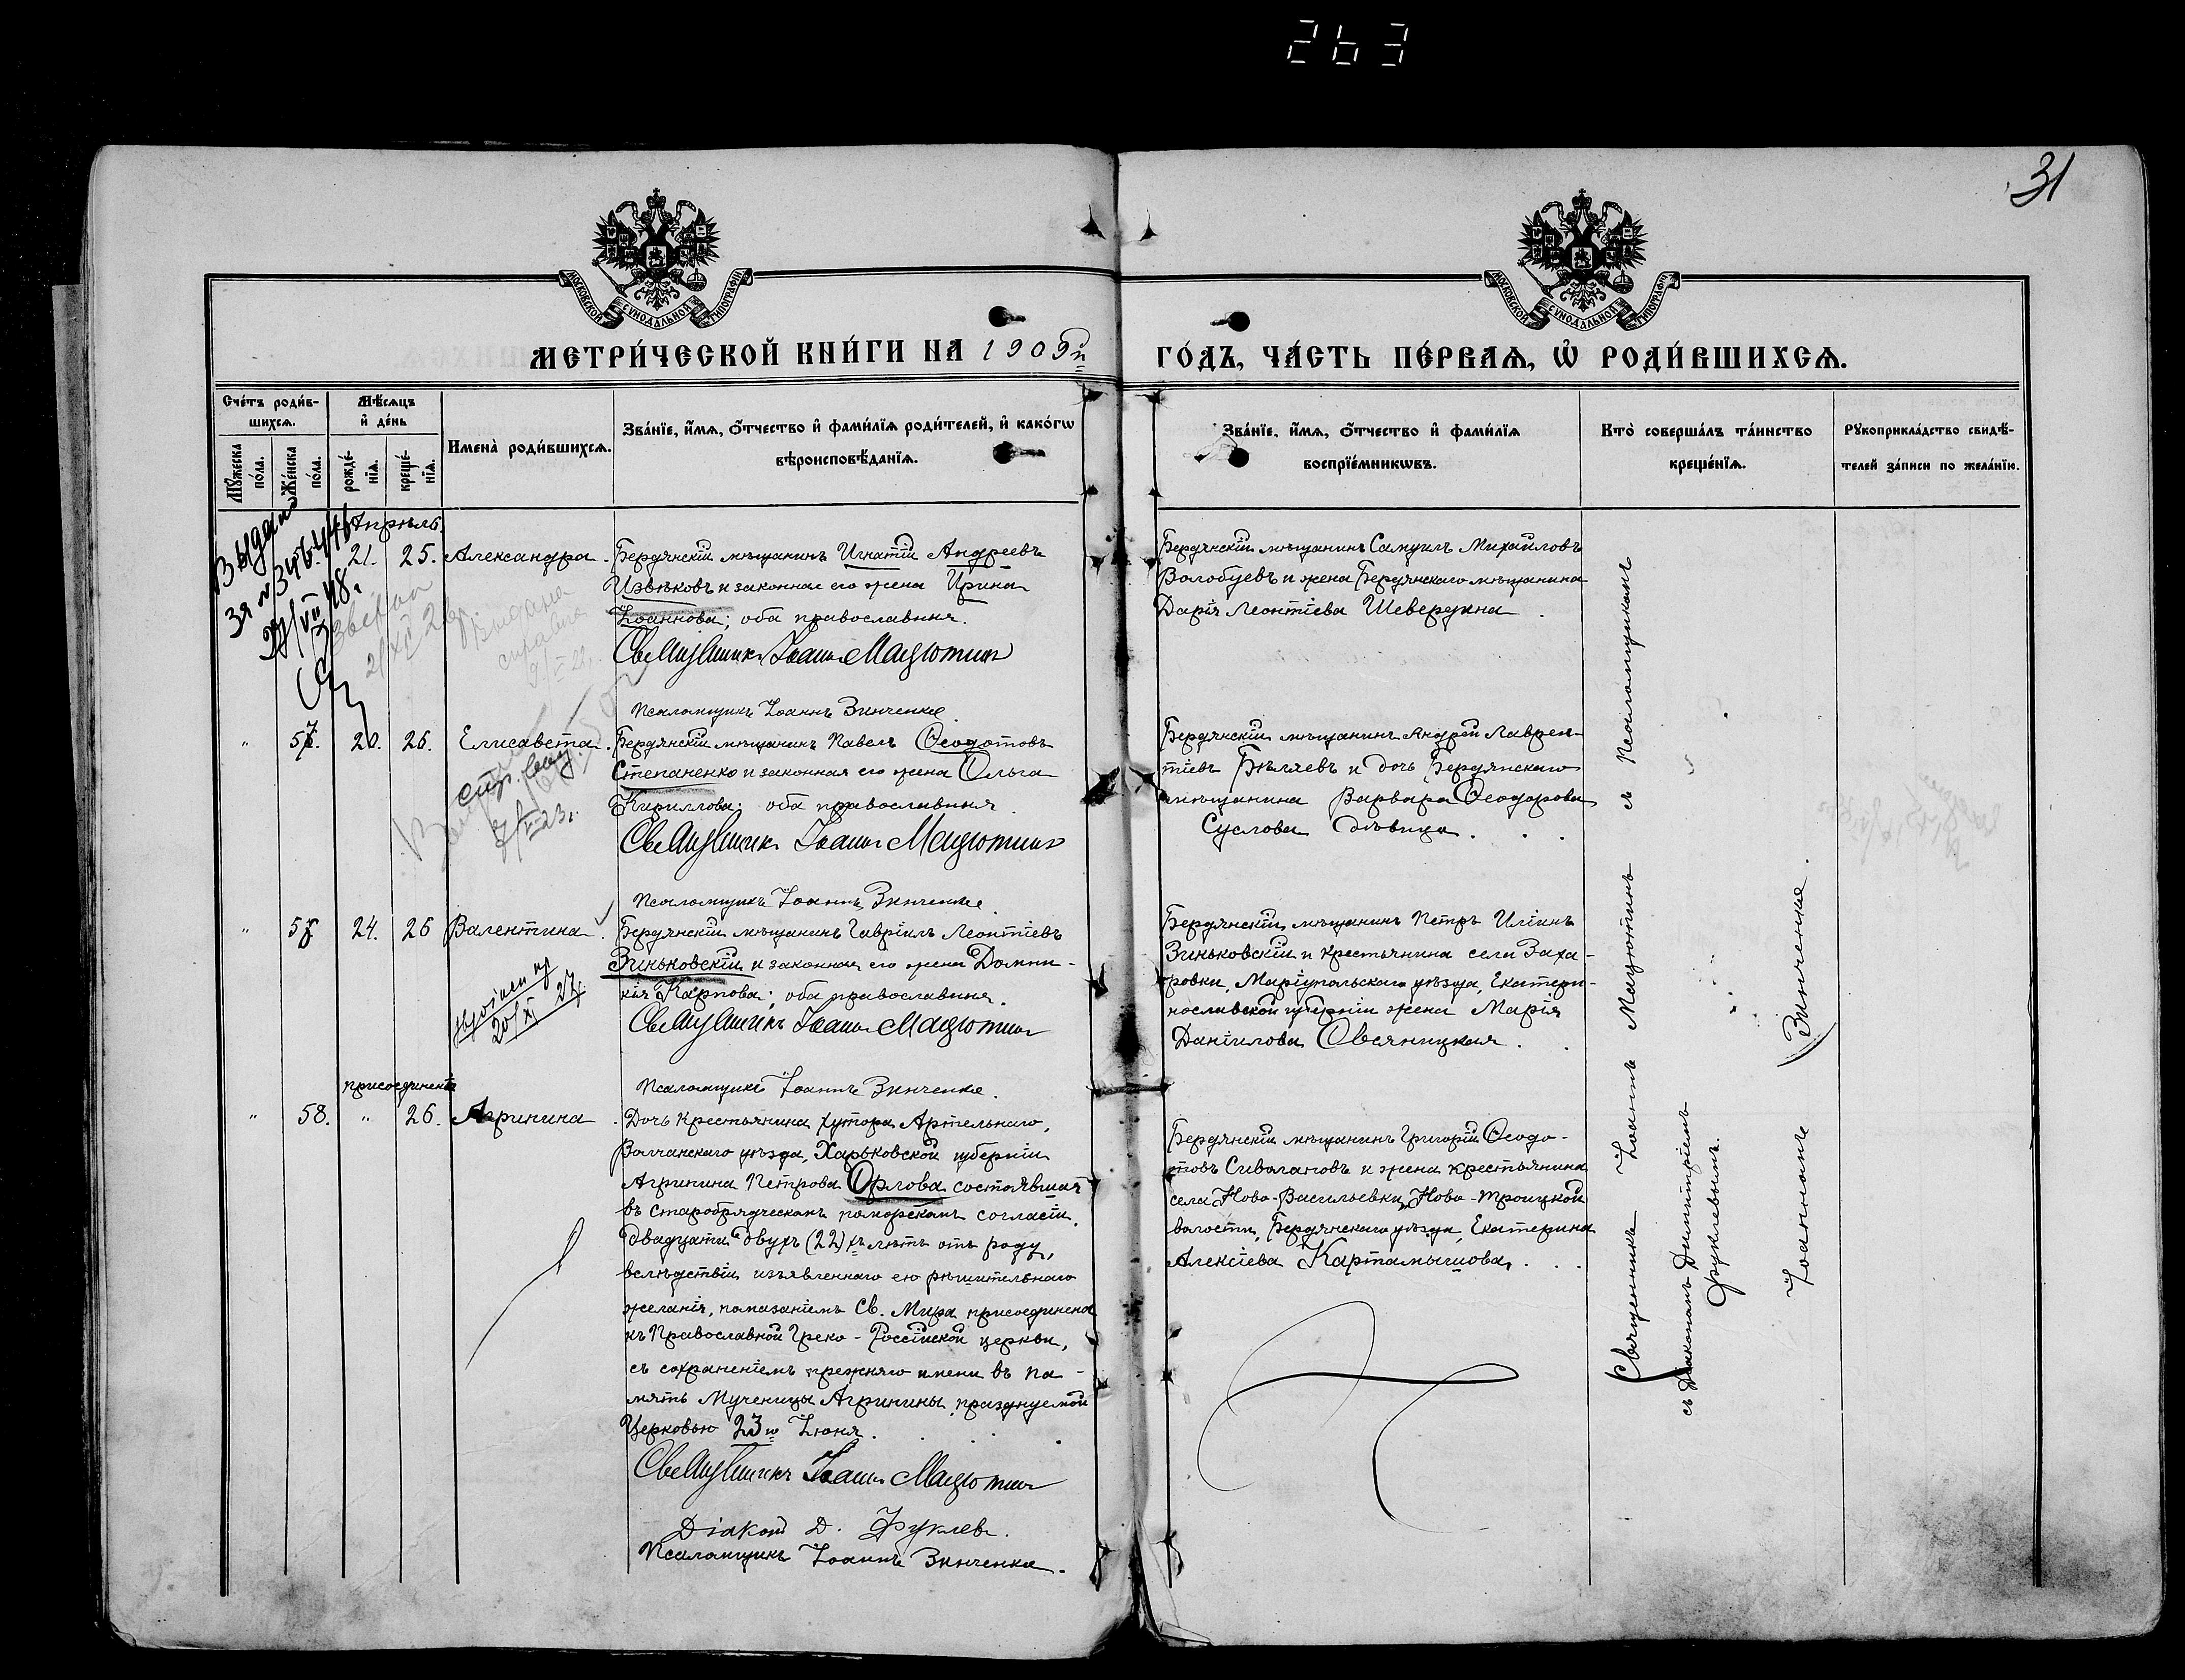 263
31
МОСКОВСКОЙ СѴНОДАЛЬНОЙ ТИПОГРАФІИ
МОСКОВСКОЙ СѴНОДАЛЬНОЙ ТИПОГРАФІИ
МЕТРИ́ЧЕСКОЙ КНИ́ГИ НА 1909й
ГО́ДЪ, ЧА́СТЬ ПЕ́РВАѦ, Ѡ҆ РОДИ́ВШИХСѦ.
Сче́тъ роди́в-
шихсѧ.
Мꙋ́жеска
по́ла.
Же́нска
по́ла.
Мѣ́сѧцъ
и҆ де́нь
рожде́-
нїѧ.
креще́-
нїѧ.
Имена̀ роди́вшихсѧ.
Зва́нїе, и҆́мѧ, ѻ҆́тчество и҆ фами́лїѧ роди́телей, и҆ како́гѡ
вѣроисповѣ́данїѧ.
Зва́нїе, и҆́мѧ, ѻ҆́тчество и҆ фами́лїѧ
воспрїе́мникѡвъ.
Кто̀ соверша́лъ та́инство
креще́нїѧ.
Рꙋкоприкла́дство свидѣ́-
телей за́писи по жела́нїю.
Выдано
за №
27/VII 48 г
Апрѣль.
21. 25. Александра.
Бердянскій мѣщанинъ Игнатій Андреевъ
Извѣковъ и законная его жена Ирина
Іоаннова; оба православныя.
Священникъ Іоаннъ Мацютинъ
Псаломщикъ Іоаннъ Зинченко.
Бердянскій мѣщанинъ Самуилъ Михайловъ
Волобуевъ и жена Бердянскаго мѣщанина
Дарія Леонтіева Шевердина.
" 20. 26. Елисавета.
Бердянскій мѣщанинъ Павелъ Ѳеодотовъ
Степаненко и законная его жена Ольга
Кириллова; оба православныя.
Священникъ Іоаннъ Мацютинъ
Псаломщикъ Іоаннъ Зинченко.
Бердянскій мѣщанинъ Андрей Лаврен-
тіевъ Бѣляевъ и дочь Бердянскаго
мѣщанина Варвара Ѳеодорова
Суслова дѣвица.
" 24. 26 Валентина.
20/XI 27.
Бердянскій мѣщанинъ Гавріилъ Леонтіевъ
Зиньковскій и законная его жена Домни-
кія Карпова; оба православныя.
Священникъ Іоаннъ Мацютинъ
Псаломщикъ Іоаннъ Зинченко.
Бердянскій мѣщанинъ Петръ Иліинъ
Зиньковскій и крестьянина села Заха-
ровки, Маріупольскаго уѣзда, Екатери-
нославской губерніи жена Марія
Даніилова Овсяницкая.
присоединена
" 58. " 26. Агрипина
Дочь крестьянина хутора Артельнаго,
Волчанскаго уѣзда, Харьковской губерніи
Агрипина Петрова Орлова состоявшая
въ старобрядческомъ поморскомъ согласіи,
двадцати двухъ (22)хъ лѣтъ отъ роду,
вслѣдствіи изъявленнаго ею рѣшительнаго
желанія, помазаніемъ Св. Мира присоединена
къ Православной Греко-Россійской церкви,
съ сохраненіемъ прежняго имени въ па-
мять Мученицы Агрипины, празднуемой
Церковью 23го Іюня.
Священникъ Іоаннъ Мацютинъ
Діаконъ Д. Фуклевъ.
Псаломщикъ Іоаннъ Зинченко.
Бердянскій мѣщанинъ Григорій Ѳеодо-
товъ Сиволаповъ и жена крестьянина
села Ново-Васильевки, Ново-Троицкой
волости, Бердянскаго уѣзда, Екатерина
Алексіева Картамышова.
Священникъ Іоаннъ Мацютинъ съ Псаломщикомъ
съ Діакономъ Димитріемъ
Фуклевымъ.
Іоанномъ Зинченко.